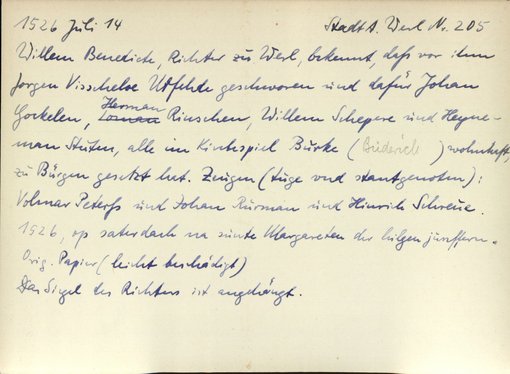 1526 Juli 14 Stadt A. Werl Nr. 205
Willem Benedicte, Richter zu Werl, bekennt, daß vor ihm
Jorgen Visscheloe Utfehde geschworen und dafür Johan
Gockelen, Herman Rinschen, Willem Schepere und Heyne-
man Stuten, alle im Kirchspiel Burke (Büderich) wohnhaft,
zu Bürgen gesetzt hat. Zeugen (tuge vnd stantgenoten):
Volmar Peters und Johan Rurman und Hinrich Schreue.
1526, op saterdach na sunte Margareten der hilgen junffern.
Orig. Papier (leicht beschädigt)
Das Siegel des Richters ist angehängt.